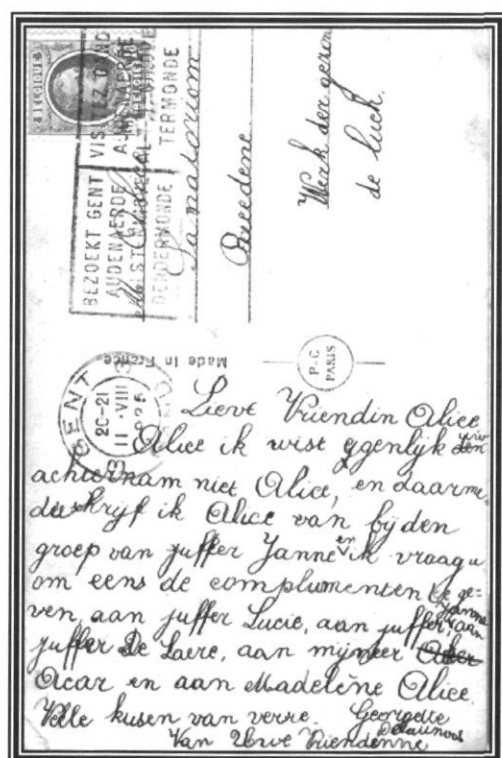 BELGIQUE
BEZOEKT GENT VISITEZ GAND
AUDENAERDE
DENDERMONDE TERMONDE
Sanatoriom
Breedene
Werk der gezon
de luch.
Made In France
P-C
PARIS
GENT
20-21
11 VIII
Lieve Vriendin Alice
Alice ik wist egenlijk uw
achternam niet Alice, en daarme
de schrijf ik Alice van bij den
groep van juffer Janne en ik vraag u
om eens de complumenten te ge=
ven, aan juffer Lucie, aan juffer Janne
juffer De Laere, aan mijneer
Acar en aan Madelène Alice.
Velle kusen van verre. Georgette
Delaunois
Van Uwe Vriendenne